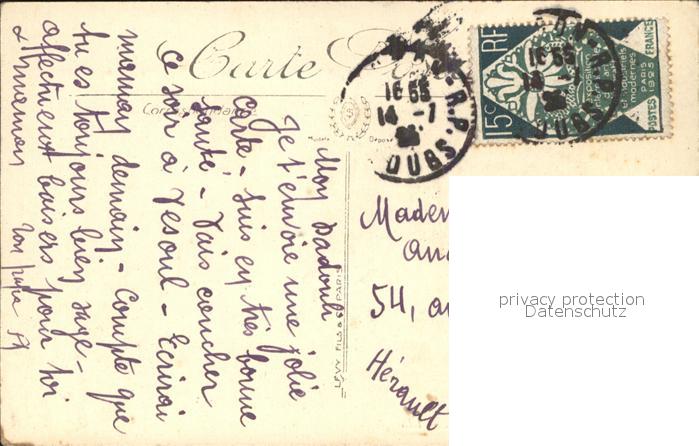 Carte
Correspondance
Mon Dadouli
Je t'envoie une jolie
carte - Suis en très bonne
santé - Vais coucher
ce soir à Vesoul - Ecrirai
maman demain - Compte que
tu es toujours bien sage -
affectueux baisers pour toi
& maman
ton papa
LEVY FILS & Cie PARIS
16 55
14 - 1
DOUBS
RF
15c
exposition
et industriels
modernes
PARIS
1925
POSTES FRANCE
16 55
DOUBS
Madem
54, a
Hérault
privacy protection
Datenschutz